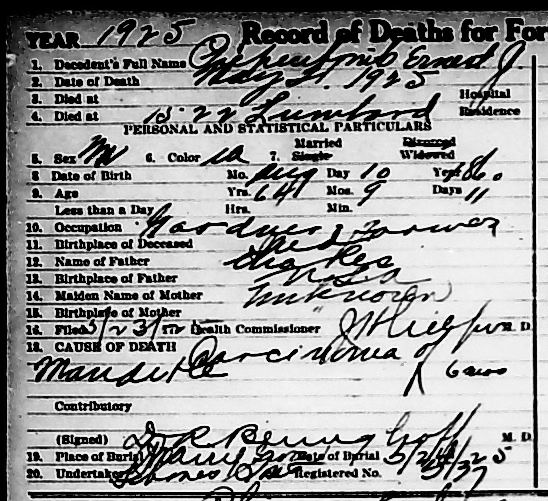 YEAR 1925 Record of Deaths for For
1. Decedent's Full Name Ernest J.
2. Date of Death May 21 1925
3. Died at Hospital
4. Died at 1522 Lumbard Residence
PERSONAL AND STATISTICAL PARTICULARS
Married Divorced
5. Sex M 6. Color W 7. Single Widowed
8 Date of Birth Mo. Aug Day 10 Year 1860
9. Age Yrs. 64 Mos. 9 Days 11
Less than a Day Hrs. Min.
10. Occupation Gardner & Farmer
11. Birthplace of Deceased
12. Name of Father Charles
13. Birthplace of Father
14. Maiden Name of Mother Unknown
15. Birthplace of Mother "
16. Filed 5/23/ Health Commissioner M. D.
18. CAUSE OF DEATH Carcinoma of
6 mos
Contributory
(Signed) M. D.
19. Place of Burial Date of Burial 5/24/25
20. Undertaker Registered No.